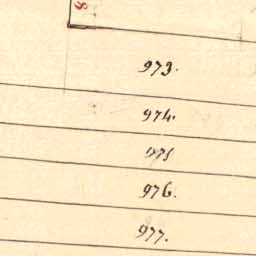 8
973.
974.
975
976.
977.